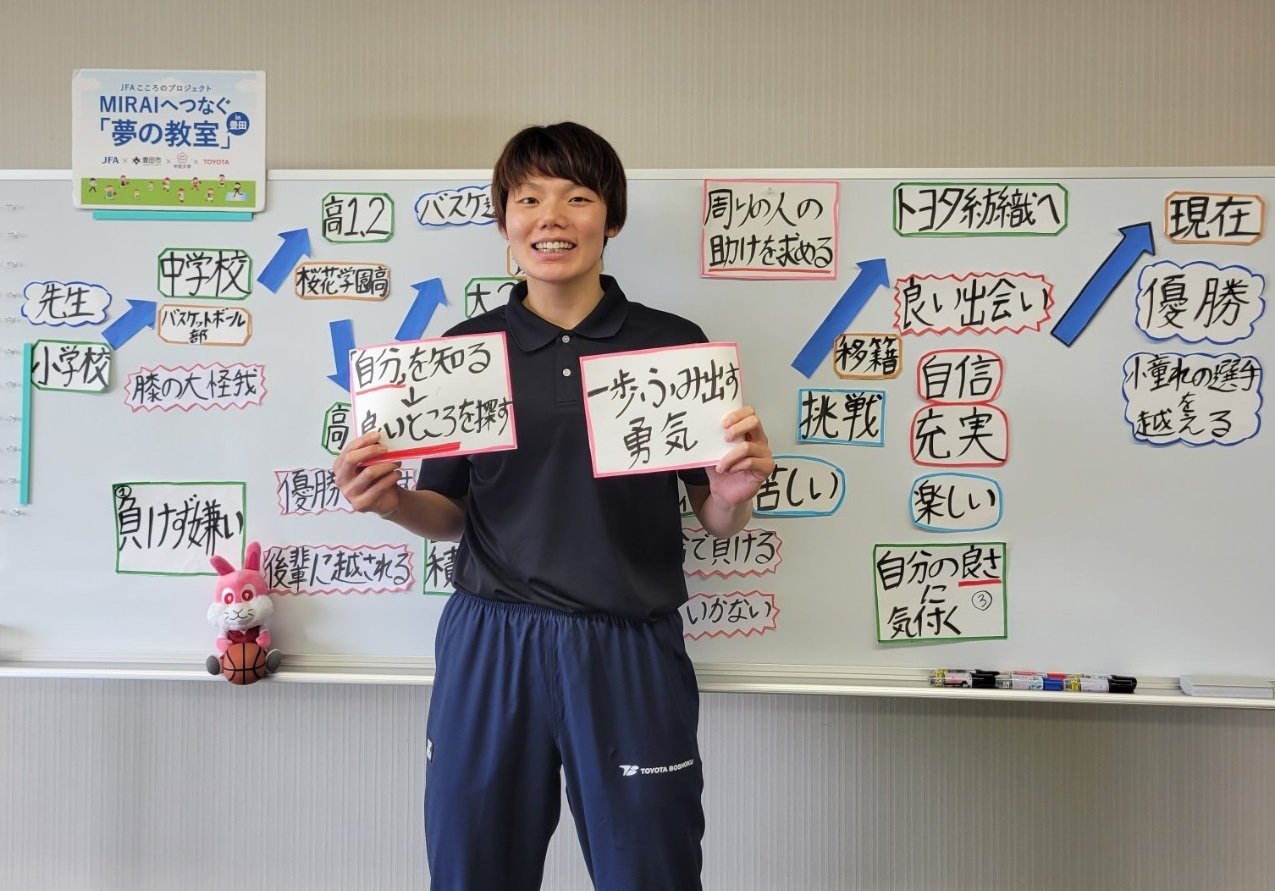 JFAこころのプロジェクト
MIRAIへつなぐ
「夢の教室」
in
豊田
JFA × 豊田市 × 中京大学 × TOYOTA
先生
小学校
中学校
バスケットボール
部
膝の大怪我
負けず嫌い
高1.2
桜花学園高
高
優勝
後輩に越される
バスケ
大
積
「自分」を知る
↓
良いところを探す
一歩ふみ出す
勇気
周りの人の
助けを求める
移籍
挑戦
苦しい
で負ける
いかない
トヨタ紡織へ
良い出会い
自信
充実
楽しい
自分の良さ
に
気付く
③
現在
優勝
憧れの選手
を
越える
TOYOTA BOSHOKU